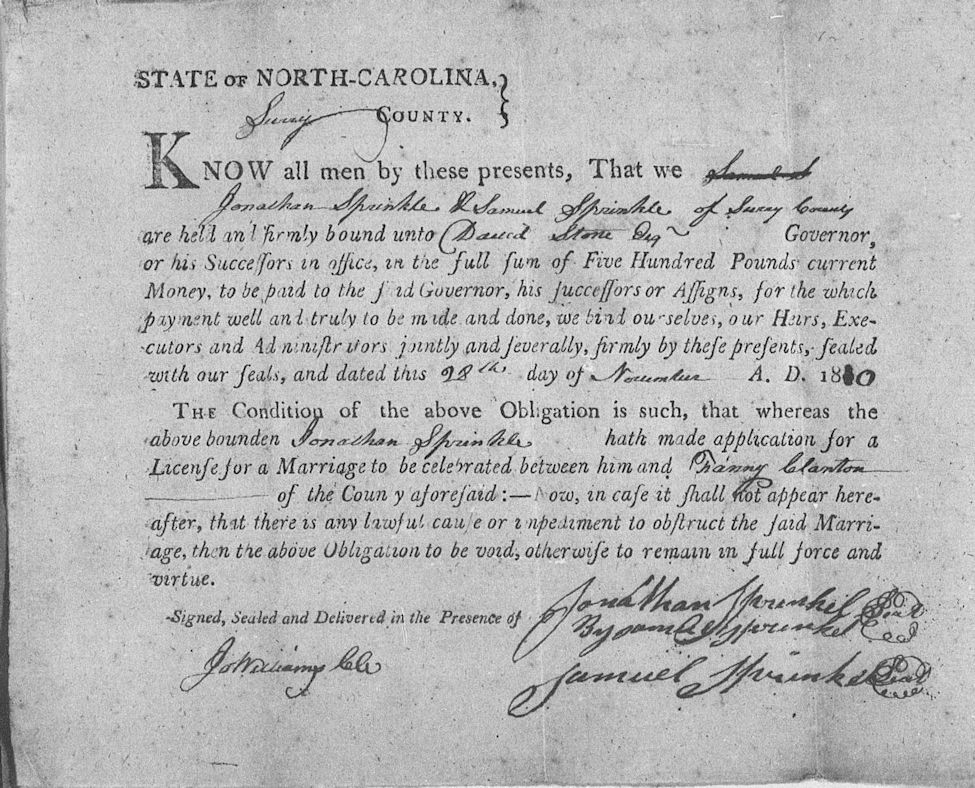 STATE OF NORTH-CAROLINA,
Surry COUNTY.
KNOW all men by these presents, That we Samuel S
Jonathan Sprinkle & Samuel Sprinkle of Surry County
are held and firmly bound unto David Stone Esqr Governor,
or his Succeſſors in office, in the full ſum of Five Hundred Pounds current
Money, to be paid to the ſaid Governor, his ſucceſſors or Aſſigns, for the which
payment well and truly to be made and done, we bind ourselves, our Heirs, Exe-
cutors and Adminiſtrators jointly and ſeverally, firmly by theſe preſents, ſealed
with our ſeals, and dated this 28th day of November A. D. 1810
THE Condition of the above Obligation is such, that whereas the
above bounden Jonathan Sprinkle hath made application for a
License for a Marriage to be celebrated between him and Fanny Clanton
of the County aforeſaid:—Now, in caſe it ſhall not appear here-
after, that there is any lawful cauſe or impediment to obſtruct the ſaid Marri-
age, then the above Obligation to be void, otherwiſe to remain in full force and
virtue.
Signed, Sealed and Delivered in the Presence of
Jonathan Sprinkel Seal
By Sprinkel Seal
Jo Williams Clk
Samuel Sprinkel Seal